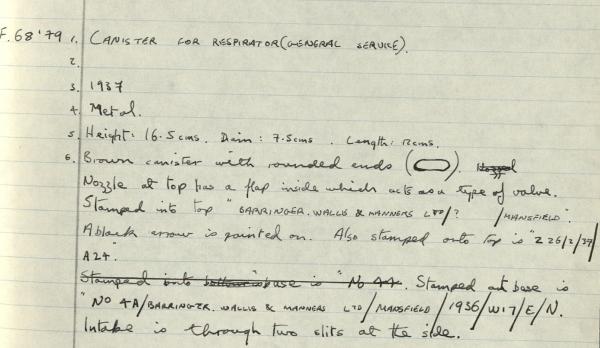 F.68'79 1. CANISTER FOR RESPIRATOR (GENERAL SERVICE).
2.
3. 1937
4. Metal.
5. Height: 16.5cms. Diam: 7.5cms. Length: 12cms.
6. Brown canister with rounded ends ( ).
Nozzle at top has a flap inside which acts as a type of valve.
Stamped into top "BARRINGER. WALLIS & MANNERS LTD/? /MANSFIELD".
A black arrow is painted on. Also stamped onto top is "Z 26/2/37/
A24".
Stamped onto bottom base is "No 44. Stamped at base is
"NO 4A/BARRINGER. WALLIS & MANNERS LTD/MANSFIELD/1936/W17/E/N.
Intake is through two slits at the side.